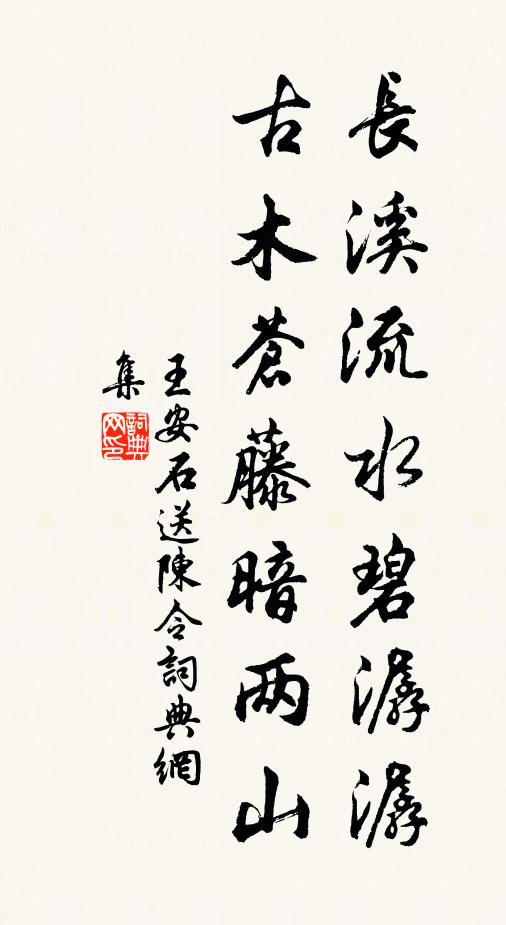 長溪流水碧潺潺
古木蒼藤暗两山
王安石送陳令詞典網
集
詞典
网印